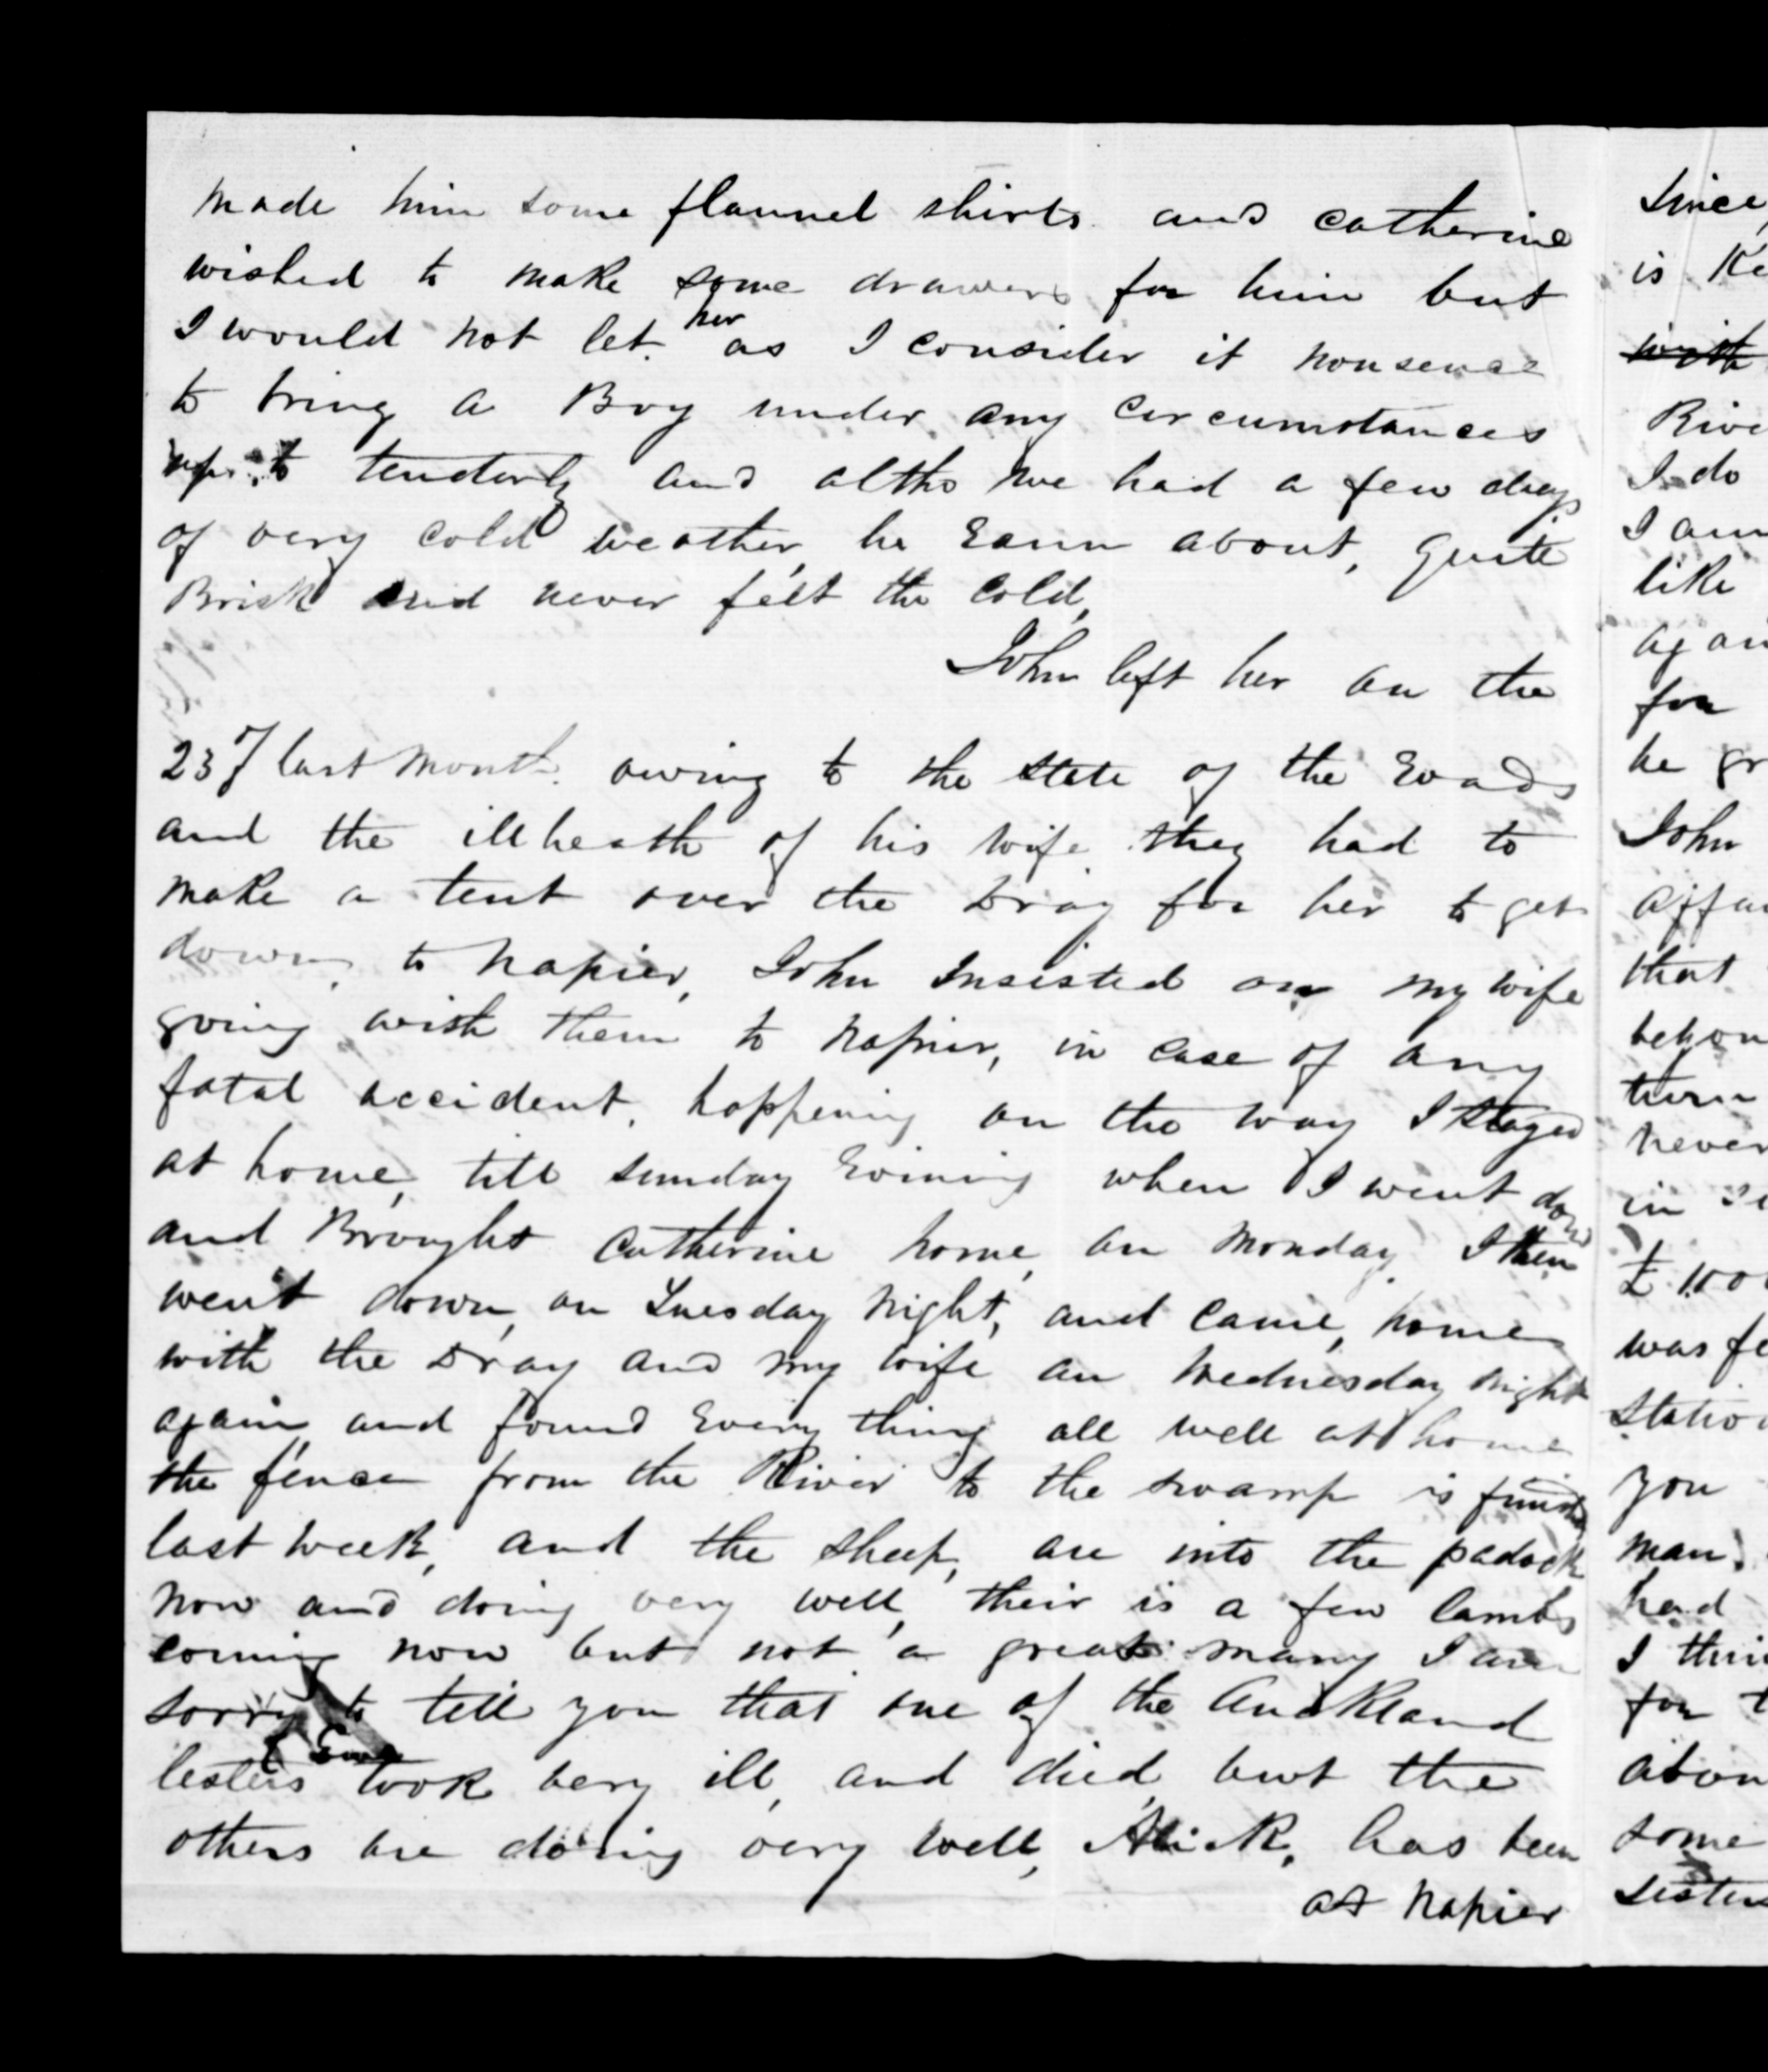 made him some flannel shirts and catherine
wished to make some drawers for him but
I would not let her as I consider it nonsence
to bring a Boy under any circumstances
up to tenderly and altho we had a few days
of very cold weather, he Rann about, quite
Brisk and never felt the cold,
John left her on the
23 of last month owing to the state of the Roads
and the ill heath of his wife they had to
make a tent over the Dray for her to get
down, to Napier, John Insisted on my wife
going with them to Napier, in case of any
fatal accident, happening on the way I stayed
at home, till sunday Evining when I went down
and Brought Catherine home, on Monday I then
went down, on Tuesday Night, and came, home
with the Dray and my wife on Wednesday night
again and found Every thing all well at home
the fence from the River to the swamp is finish
last week, and the sheep, are into the padock
now and doing very well, their is a few lambs
coming now but not a great many I am
sorry to tell you that one of the Auckland
lesters Ewes took very ill, and died, but the
others are doing very well, Alick, has been
at Napier
since,
is
with
River
I do
I am
like
again
for
he
John
affair
that
turn
never
in
was
station
you
man,
had
I think
for
about
some